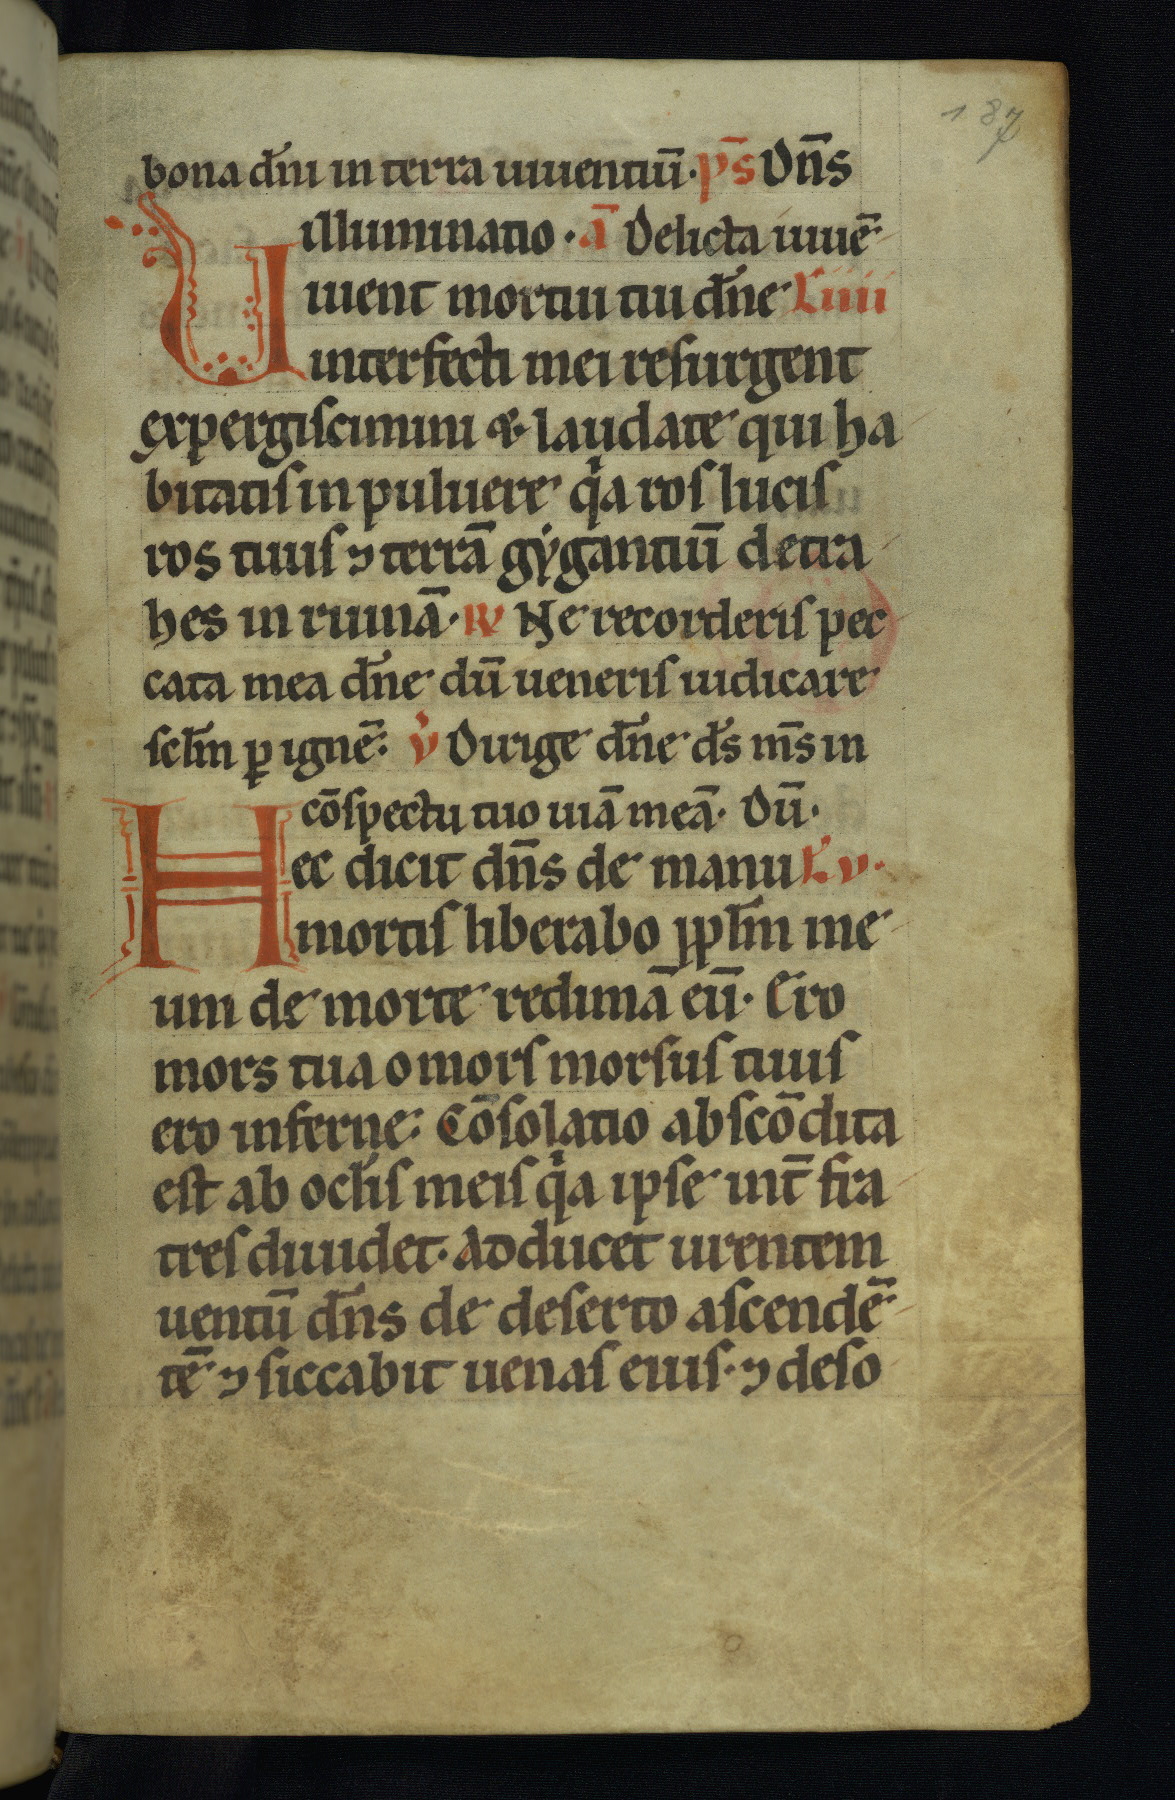 187
bona dn̄i in terra uiuentiū. ps̄ Dn̄s
illuminatio. ā Delicta iuuē
Uiuent mortui tui dn̄e L iiii
interfecti mei resurgent
expergiscimini & laudate qui ha
bitatis in puluere qia ros lucis
ros tuus ⁊ terrā gẏgantiū detra
hes in ruinā. R̸ Ne recorderis pec
cata mea dn̄e dū ueneris iudicare
sclm̄ ꝑ ignē. v̇ Dirige dn̄e ds̄ ms̄ in
cōspectu tuo uiā meā. Dū.
Hec dicit dn̄s de manu L v.
mortis liberabo pplm̄ me
um de morte redimā eū. Ero
mors tua o mors morsus tuus
ero inferne. Cōsolatio abscōdita
est ab oclis meis qia ipse int̄ fra
tres diuidet. Adducet urentem
uentū dn̄s de deserto ascendē
tē ⁊ siccabit uenas eius. ⁊ deso